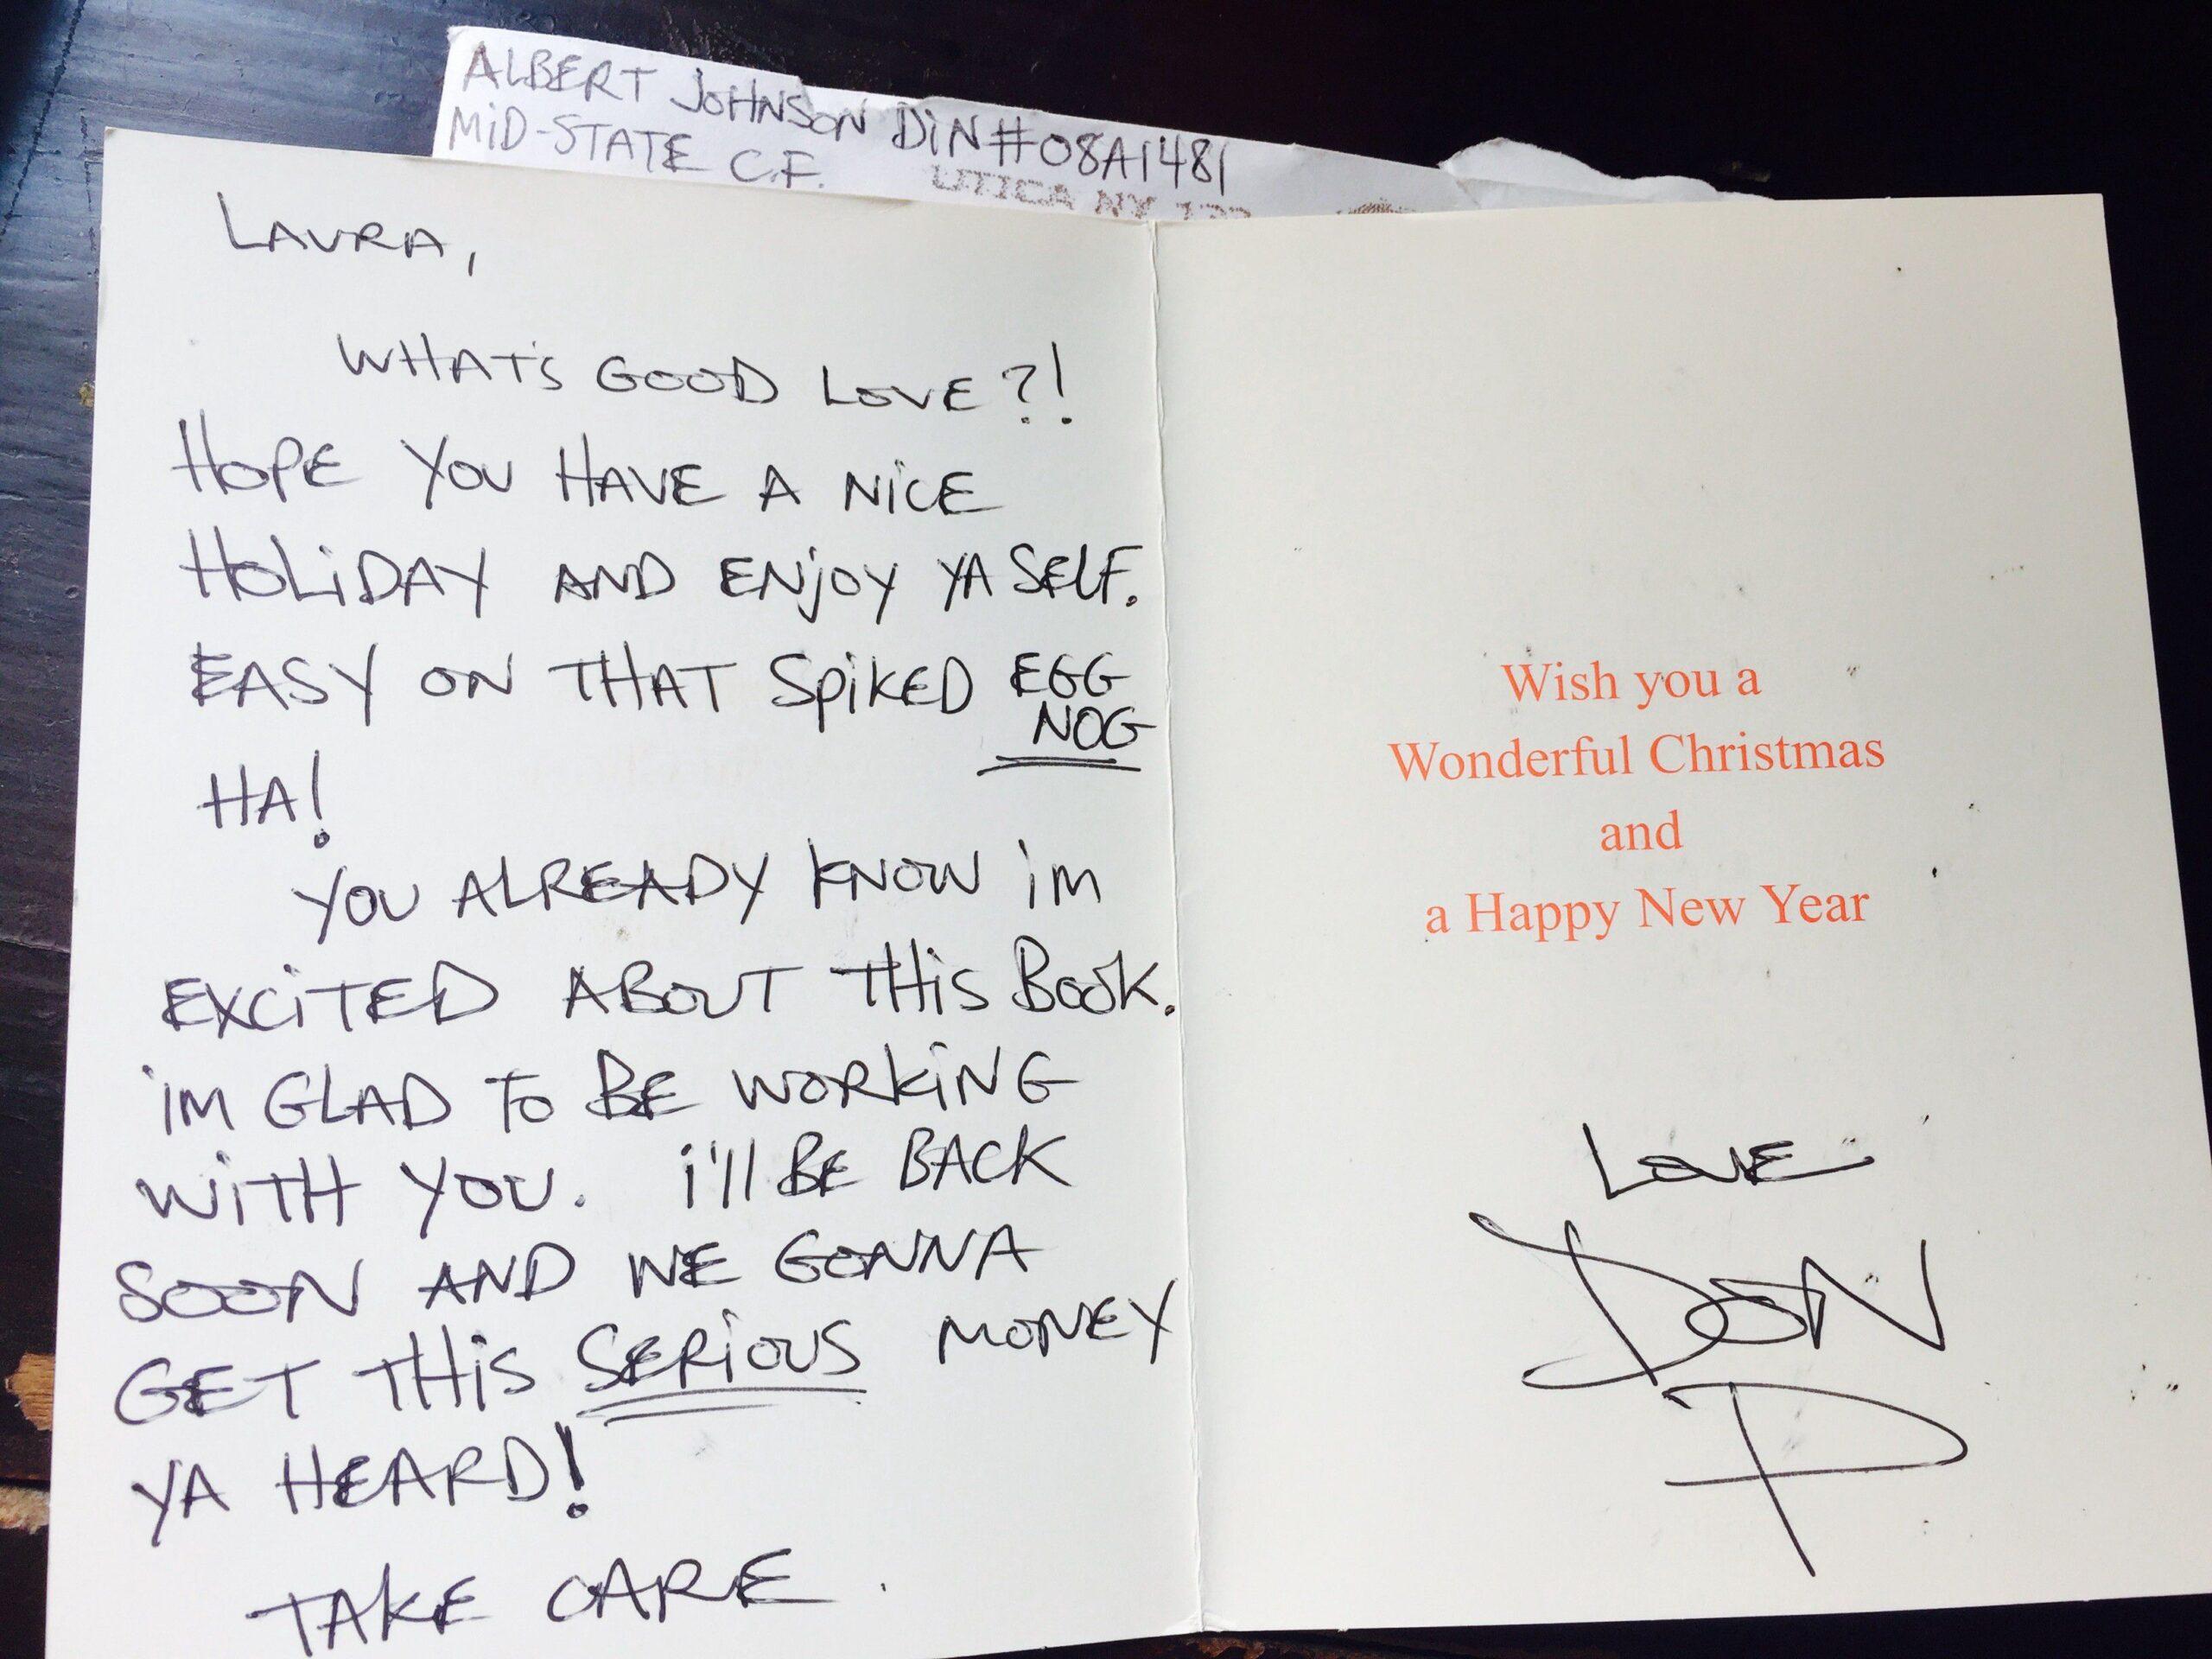 ALBERT JOHNSON DIN#08A1481
MID-STATE C.F.
UTICA NY
LAURA,
WHAT'S GOOD LOVE?!
HOPE YOU HAVE A NICE
HOLIDAY AND ENJOY YA SELF.
EASY ON THAT SPIKED EGG
NOG
HA!
YOU ALREADY KNOW iM
EXCITED ABOUT THIS BOOK.
iM GLAD TO BE WORKING
WITH YOU. i'll BE BACK
SOON AND WE GONNA
GET THIS SERIOUS MONEY
YA HEARD!
TAKE CARE.
Wish you a
Wonderful Christmas
and
a Happy New Year
LOVE
DON
P